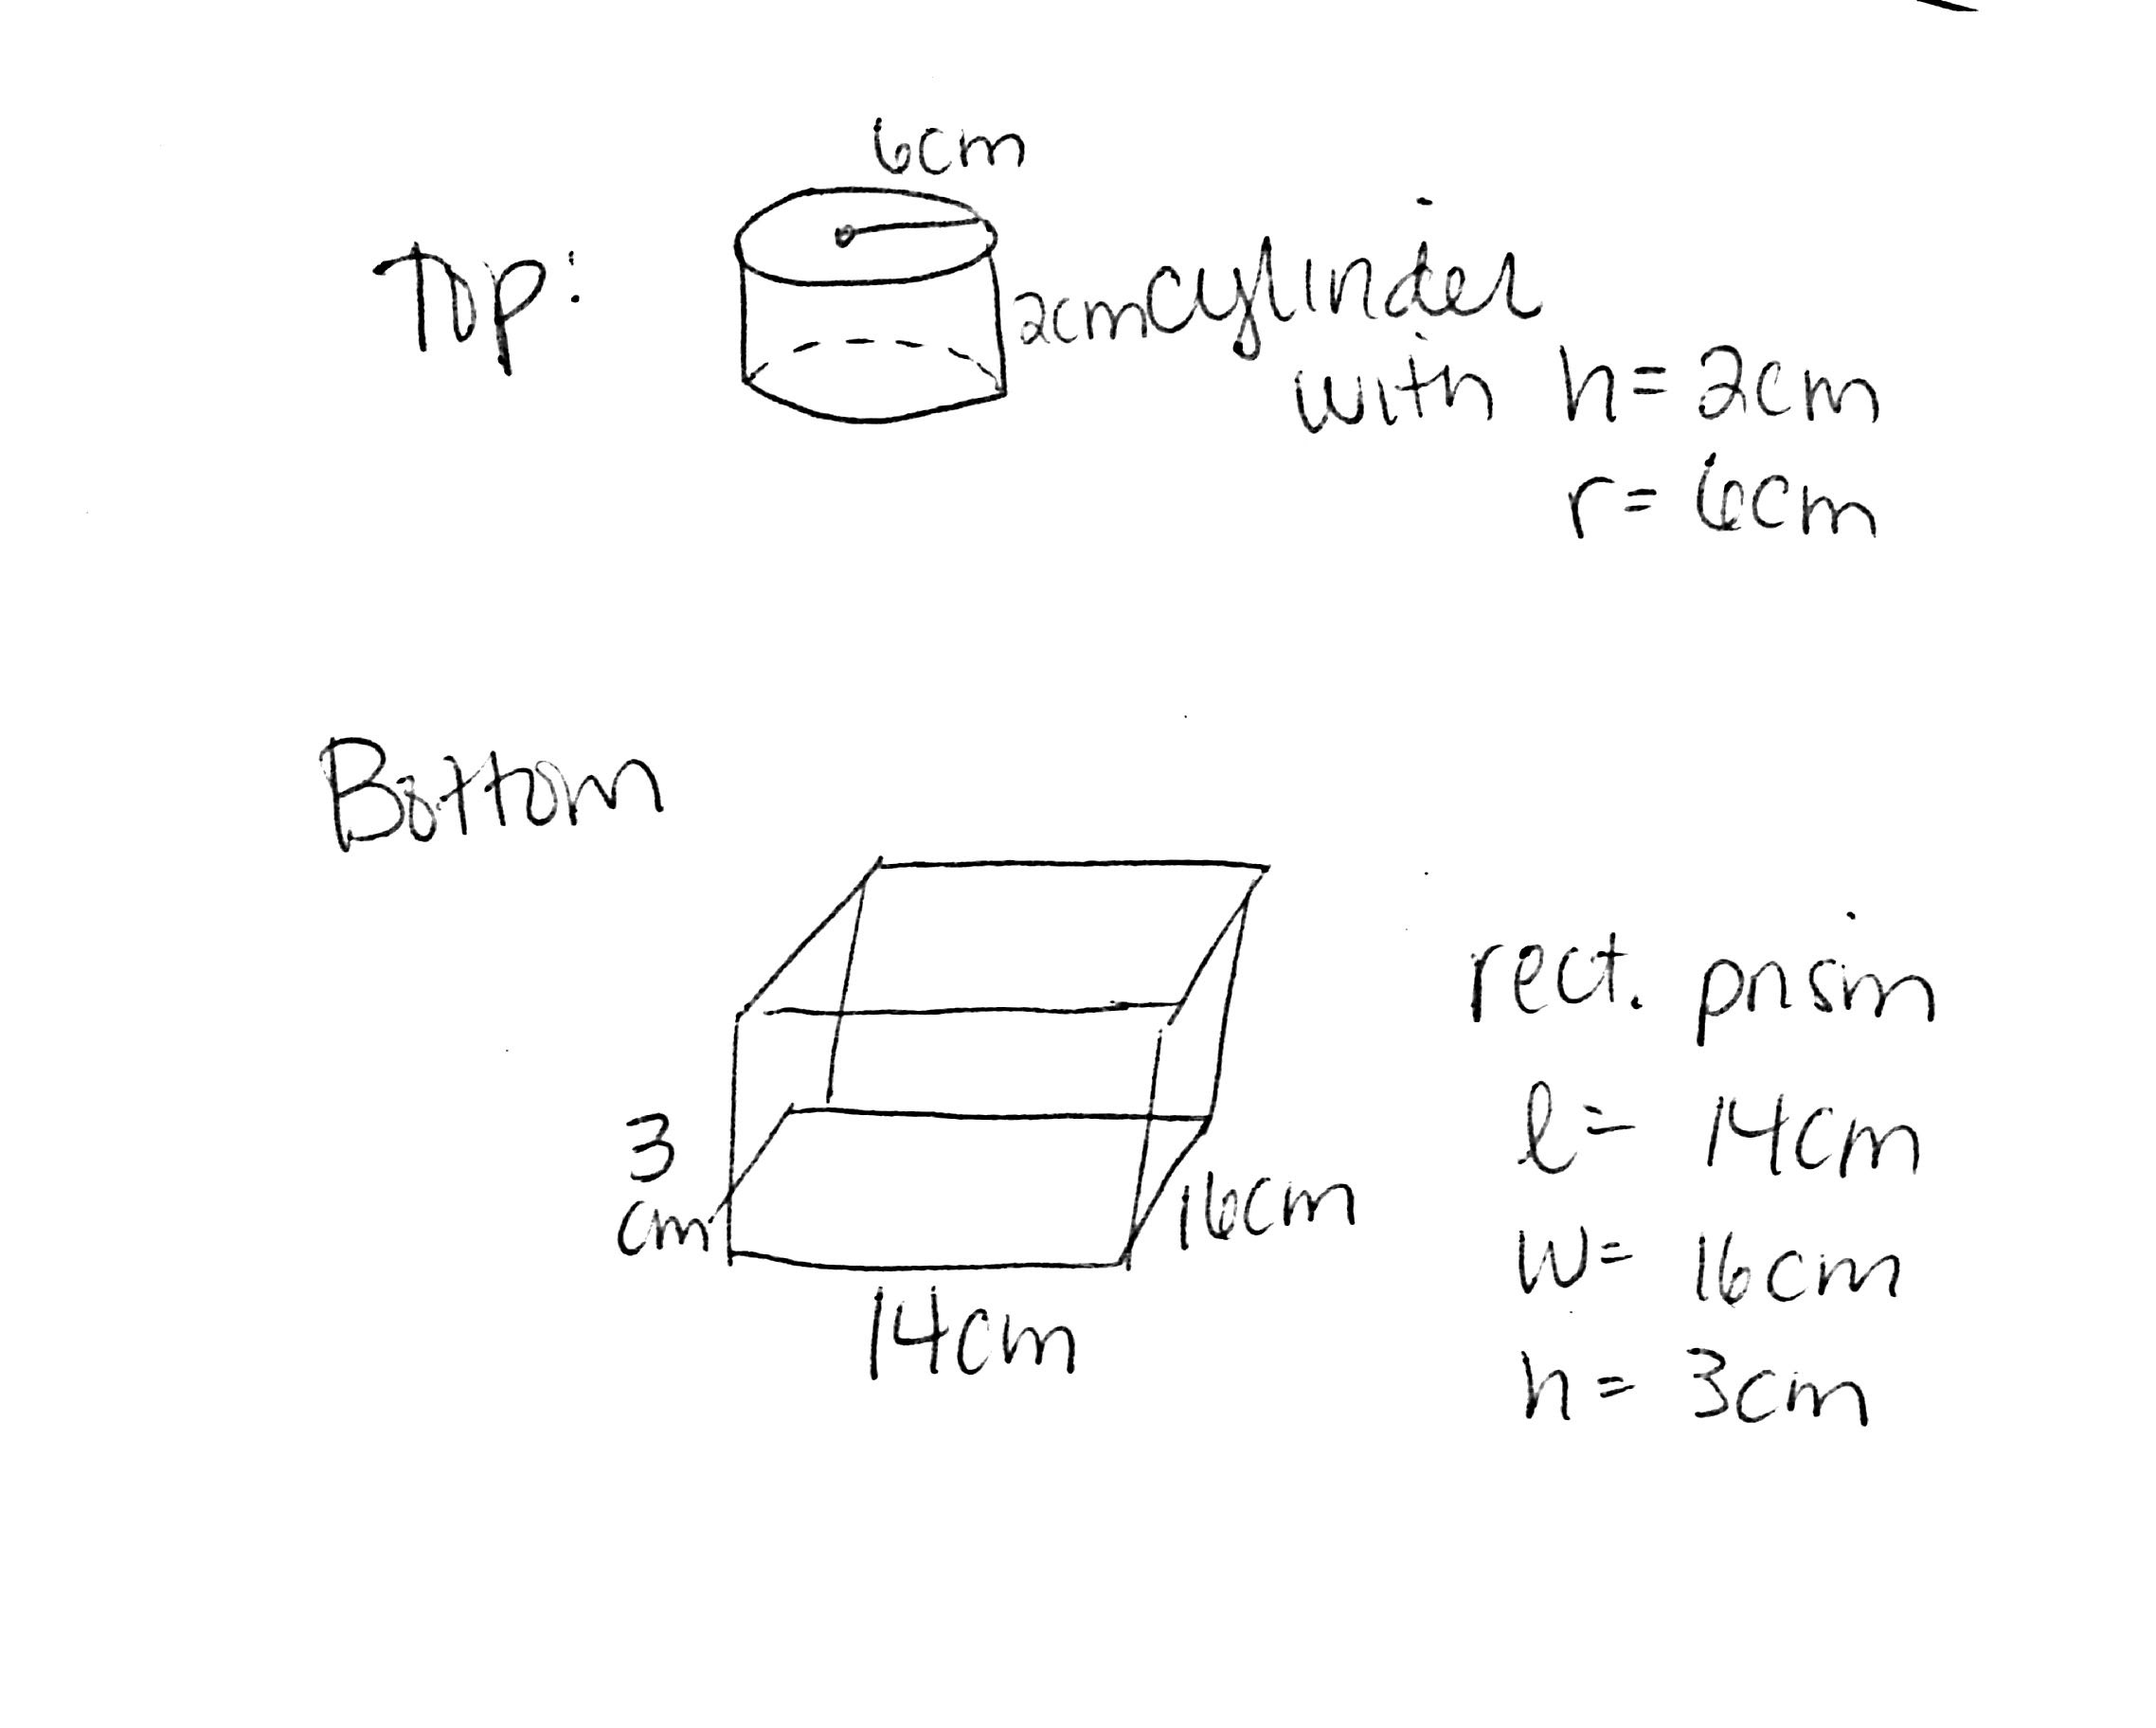 6cm
Top:
2cm
cylinder
with h=2cm
r=6cm
Bottom
3
cm
16cm
14cm
rect. prism
l= 14cm
w= 16cm
h= 3cm